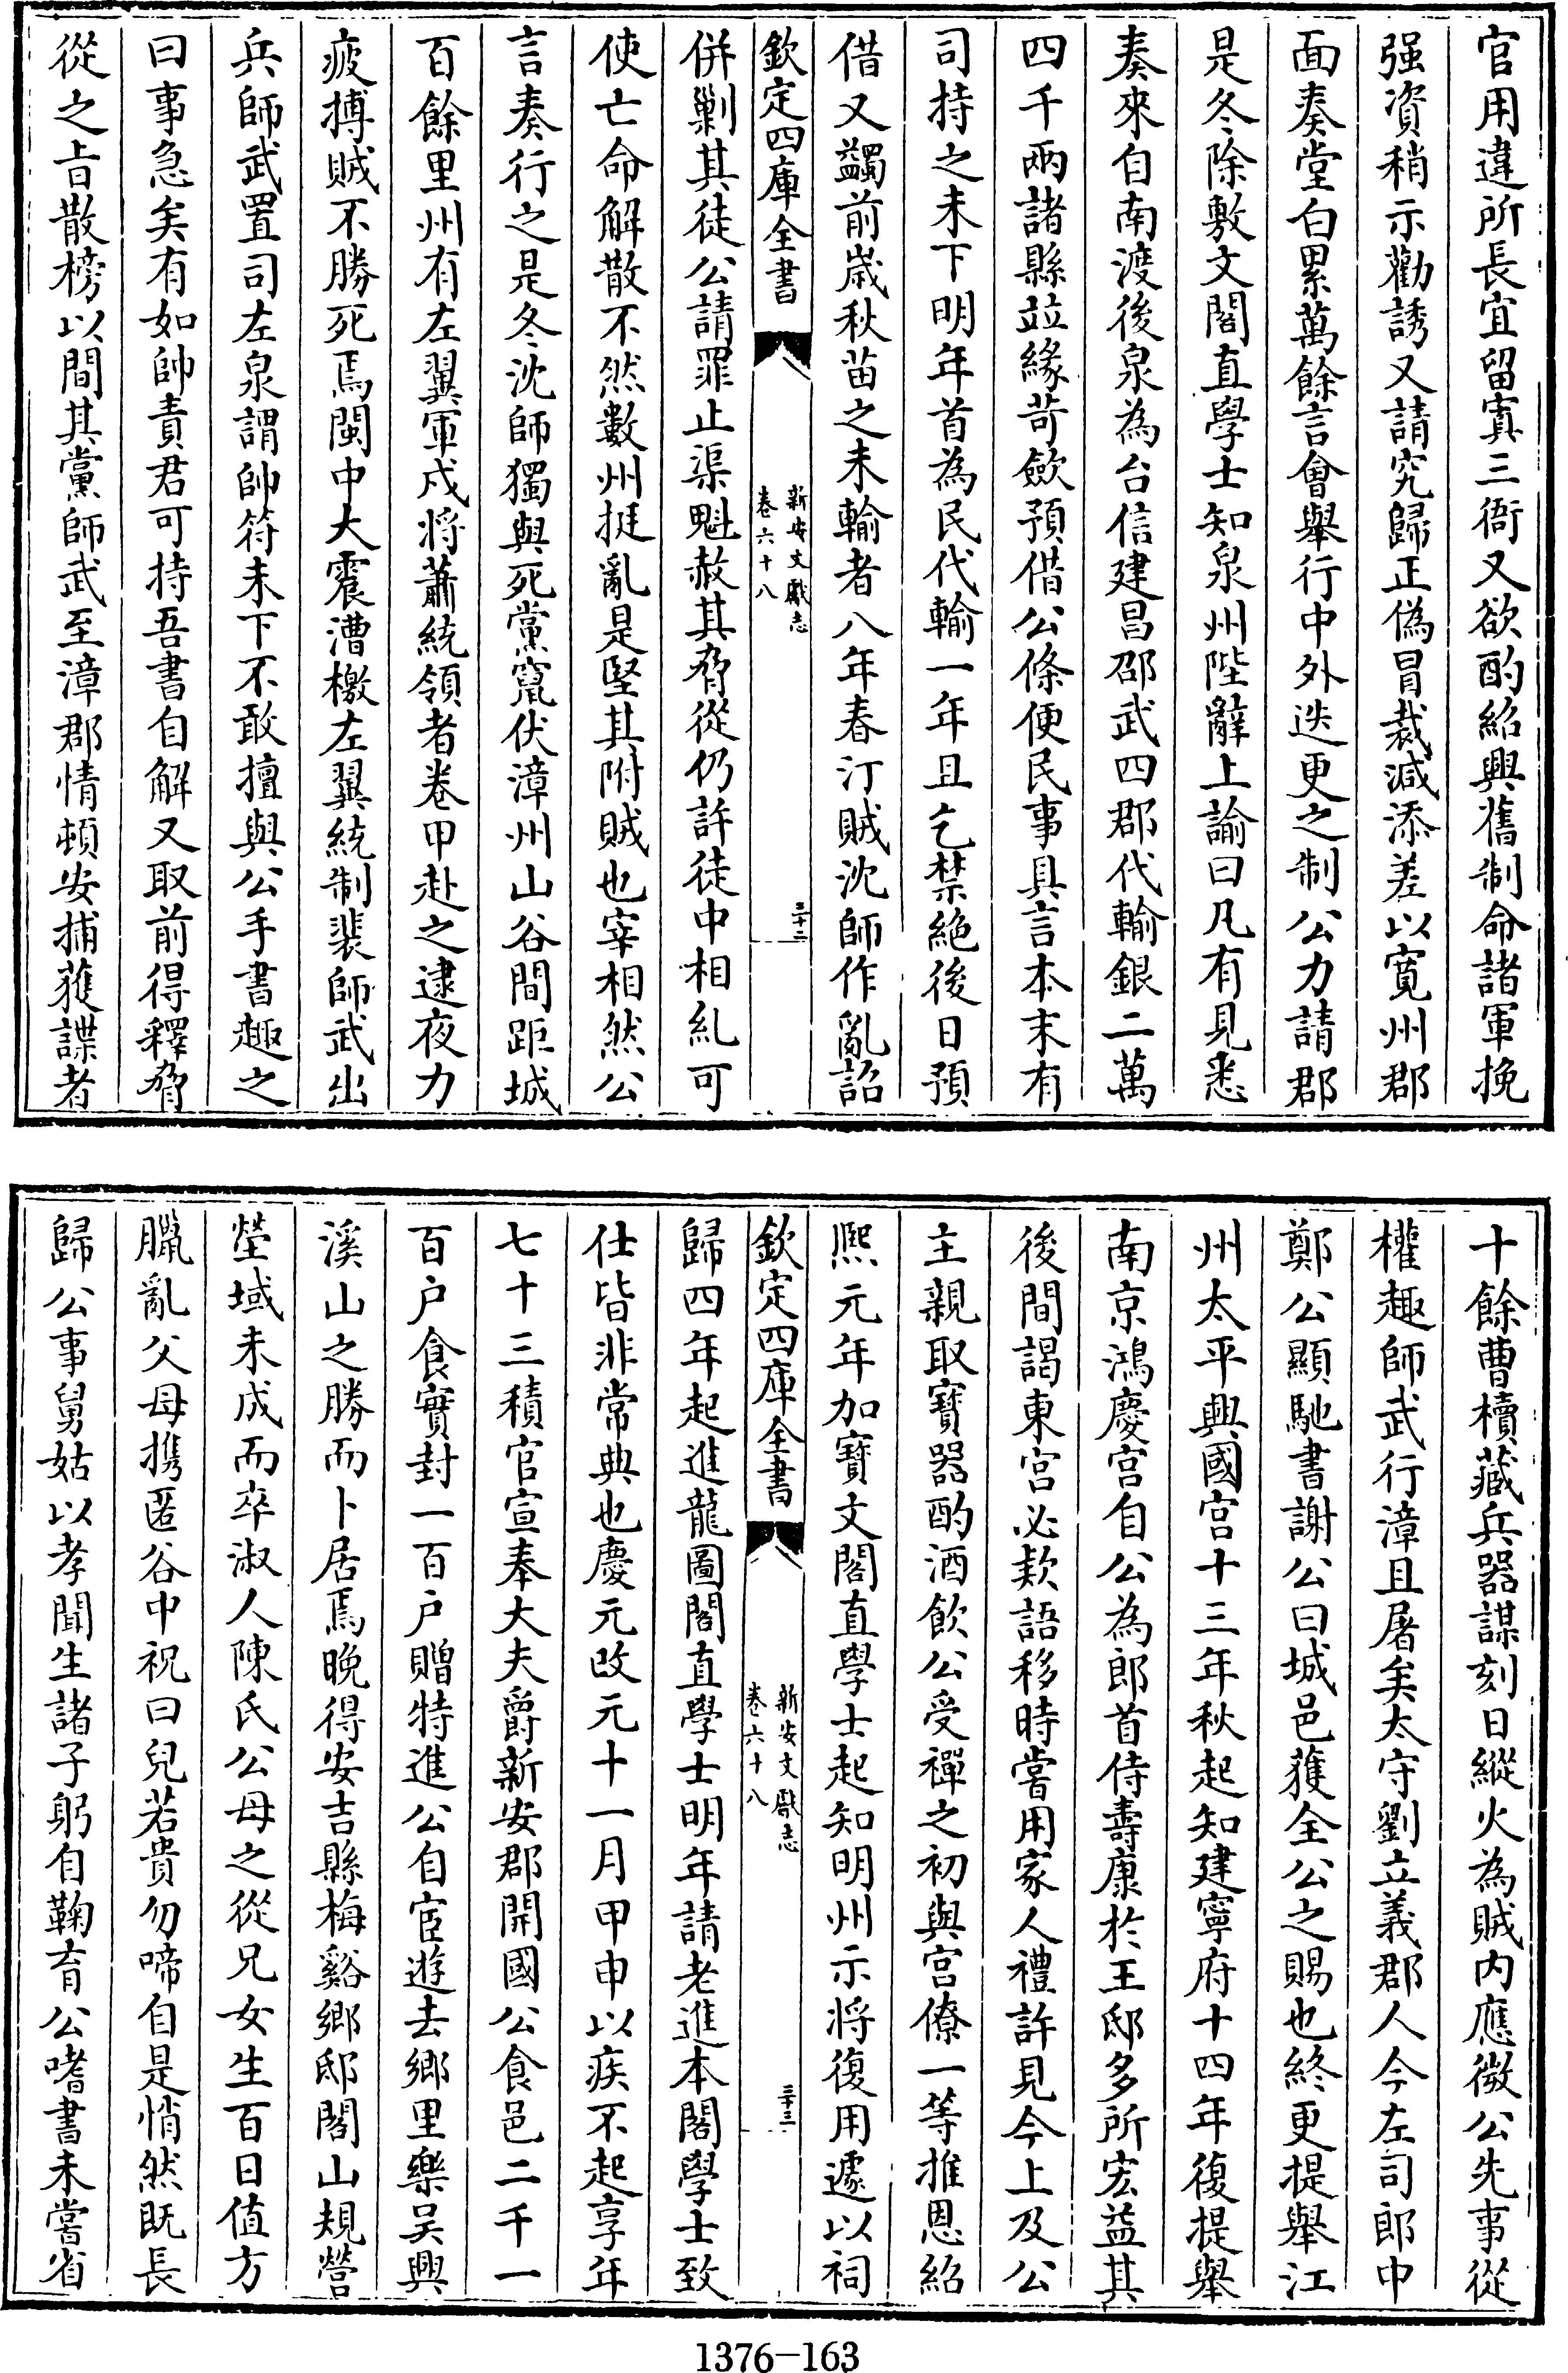 官用違所長宜留寘三衙又欲酌紹興舊制命諸軍挽
强資稍示勸誘又請究歸正偽冒裁減添差以寛州郡
面奏堂白累萬餘言會舉行中外迭更之制公力請郡
是冬除敷文閣直學士知泉州陛辭上諭曰凡有見悉
奏來自南渡後泉為台信建昌邵武四郡代輸銀二萬
四千兩諸縣並緣苛歛預借公條便民事具言本末有
司持之未下明年首為民代輸一年且乞禁絶後日預
借又蠲前歲秋苗之未輸者八年春汀賊沈師作亂詔
欽定四庫全書
新安文獻志
卷六十八
三十二
併剿其徒公請罪止渠魁赦其脅從仍許徒中相糺可
使亡命解散不然數州挺亂是堅其附賊也宰相然公
言奏行之是冬沈師獨與死黨竄伏漳州山谷間距城
百餘里州有左翼軍戍將蕭統領者卷甲赴之逮夜力
疲搏賊不勝死焉閩中大震漕檄左翼統制裴師武出
兵師武置司左泉謂帥符未下不敢擅與公手書趣之
曰事急矣有如帥責君可持吾書自解又取前得釋脅
從之㫖散榜以間其黨師武至漳郡情頓安捕獲諜者
十餘曹櫝藏兵器謀刻日縱火為賊内應微公先事從
權趣師武行漳且屠矣太守劉立義郡人今左司郎中
鄭公顯馳書謝公曰城邑獲全公之賜也終更提舉江
州太平興國宫十三年秋起知建寧府十四年復提舉
南京鴻慶宫自公為郎首侍壽康於王邸多所宏益其
後間謁東宫必欵語移時嘗用家人禮許見今上及公
主親取寶器酌酒飲公受禪之初與宫僚一等推恩紹
熙元年加寶文閣直學士起知明州示將復用遽以祠
欽定四庫全書
新安文獻志
卷六十八
三十三
歸四年起進龍圖閣直學士明年請老進本閣學士致
仕皆非常典也慶元改元十一月甲申以疾不起享年
七十三積官宣奉大夫爵新安郡開國公食邑二千一
百户食實封一百户贈特進公自宦遊去鄉里樂吴興
溪山之勝而卜居焉晚得安吉縣梅谿鄉邸閣山規營
塋域未成而卒淑人陳氏公母之從兄女生百日值方
臘亂父母携匿谷中祝曰兒若貴勿啼自是悄然既長
歸公事舅姑以孝聞生諸子躬自鞠育公嗜書未嘗省
1376-163